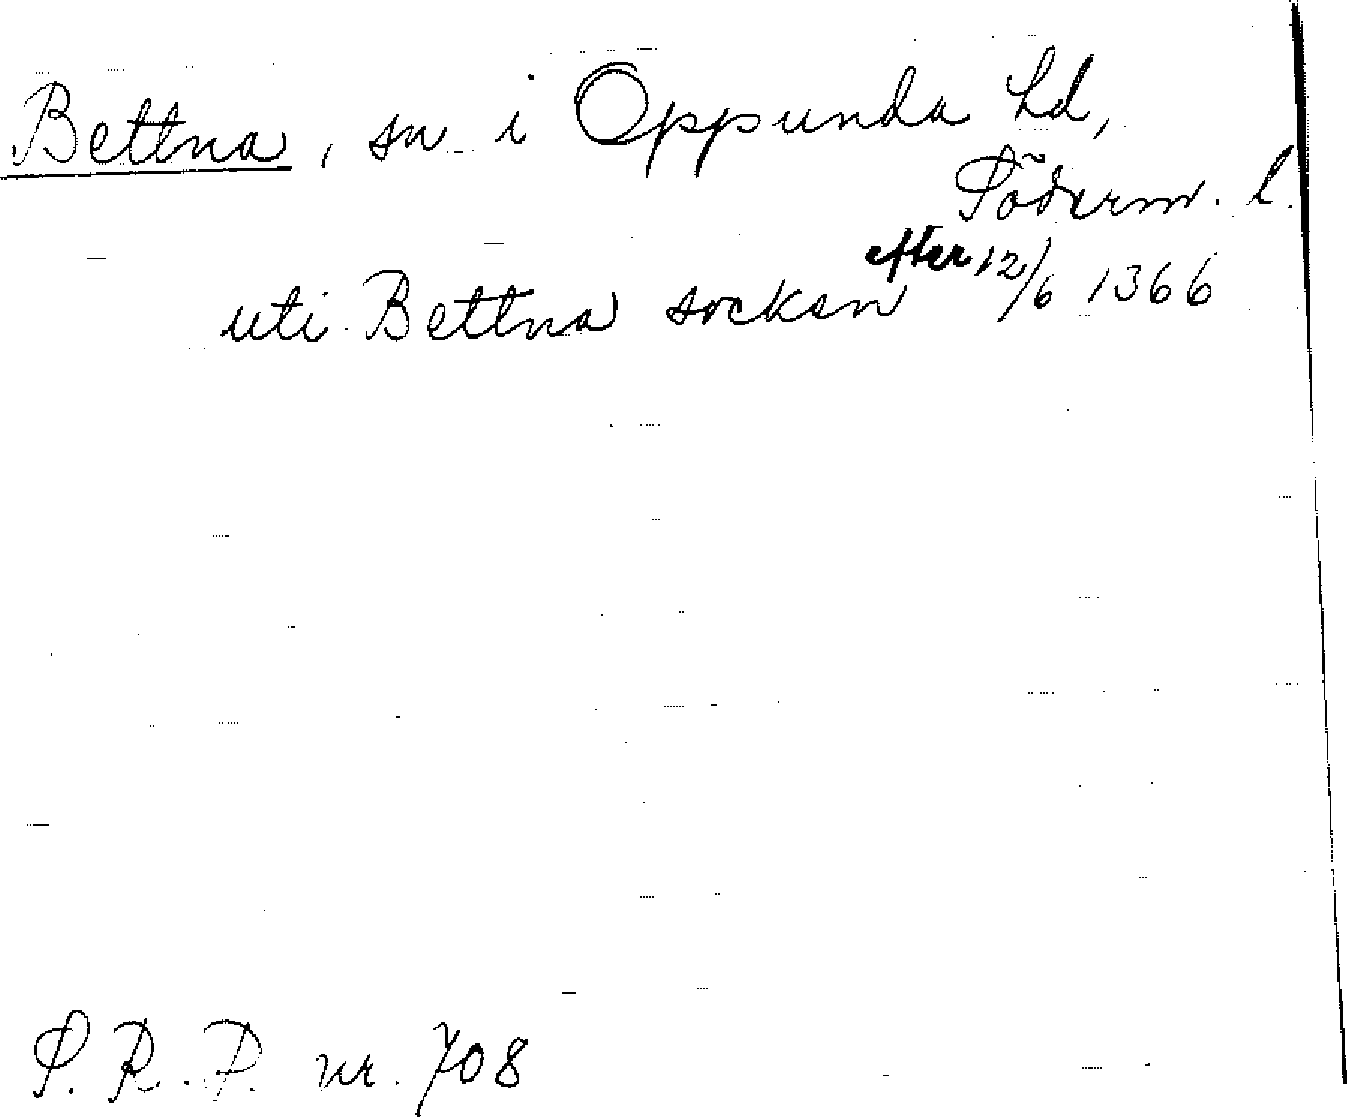 Bettna, sn i Oppunda hd,
Söderm. l.
efter 12/6 1366
uti Bettna socken
S. R. P. nr. 708